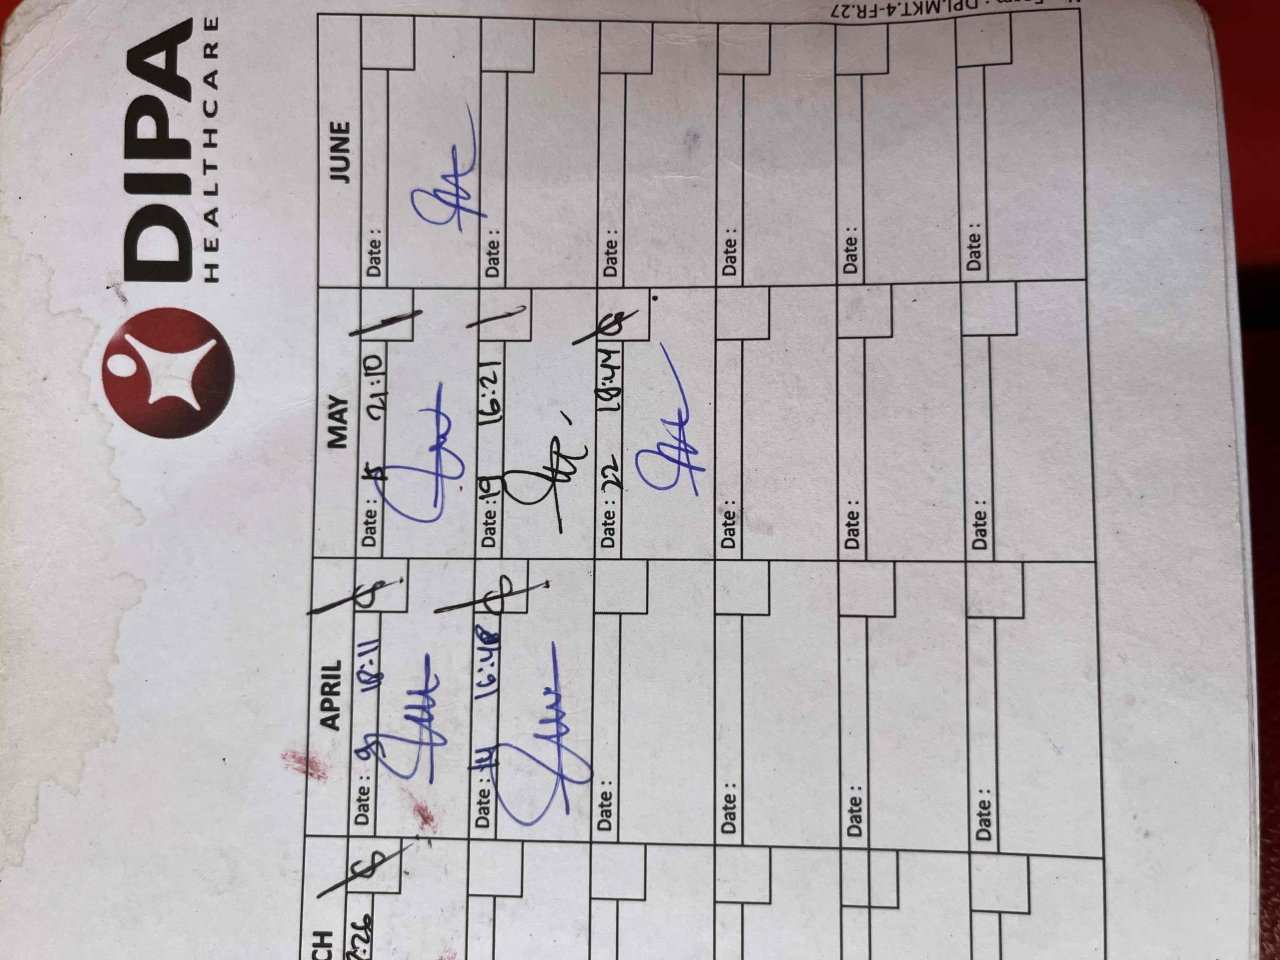 DIPA
HEALTHCARE
CH APRIL MAY JUNE
:26
Date : 9 18:11
Date : 15 21:10
Date :
Date : 14 16:48
Date : 19 16:21
Date :
Date :
Date : 22 18:44
Date :
Date :
Date :
Date :
Date :
Date :
Date :
Date :
Date :
Date :
: DPI.MKT.4-FR.27